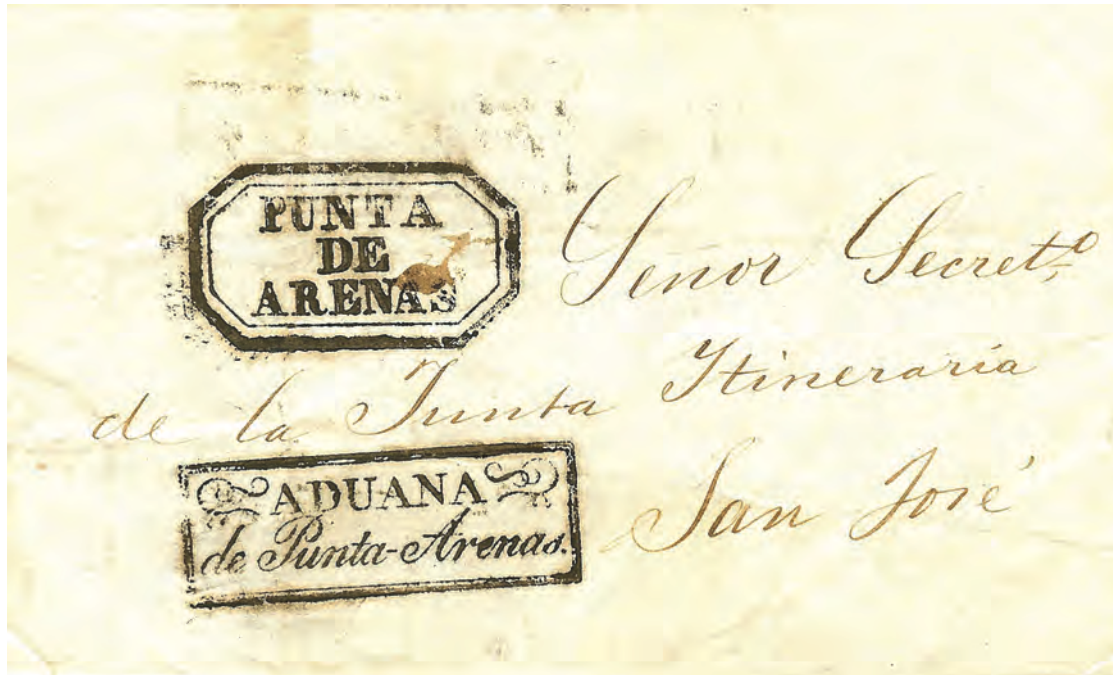 PUNTA
DE
ARENAS
Señor Secret.º
de la Junta Itineraria
San José
ADUANA
de Punta-Arenas.